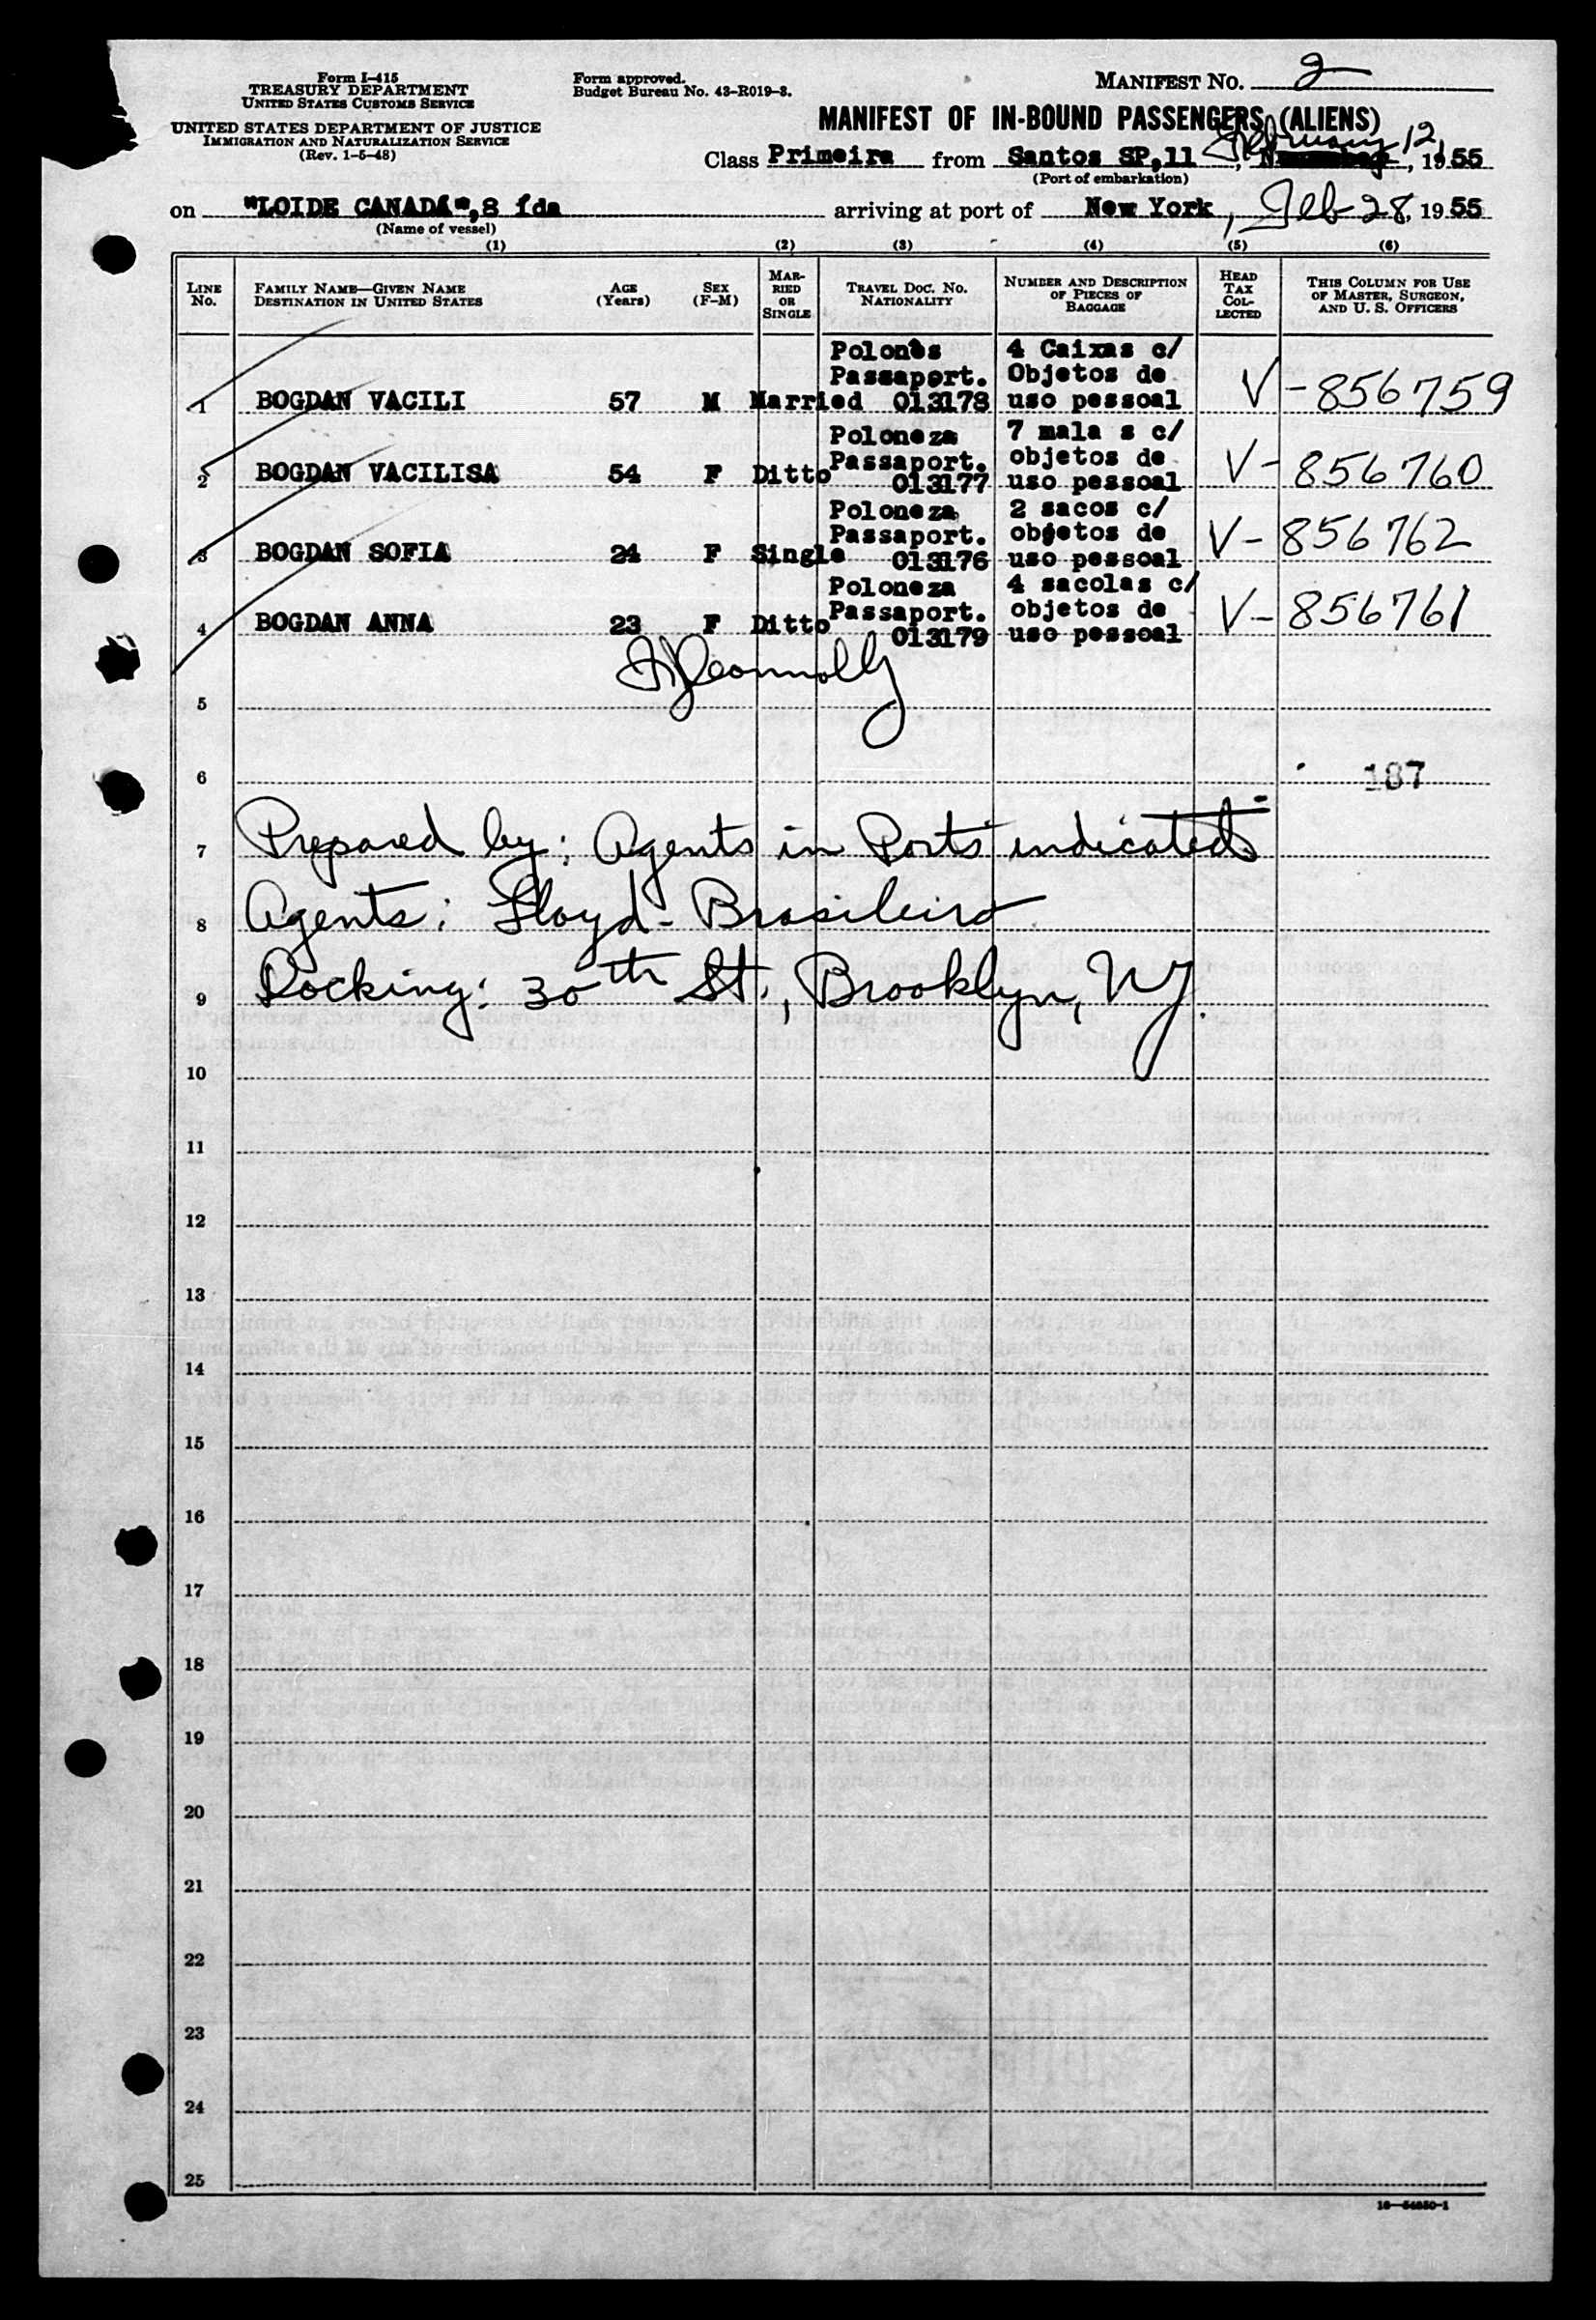 Form I-415
TREASURY DEPARTMENT
UNITED STATES CUSTOMS SERVICE
UNITED STATES DEPARTMENT OF JUSTICE
IMMIGRATION AND NATURALIZATION SERVICE
(Rev. 1-5-48)
Form approved.
Budget Bureau No. 43-R019-3.
MANIFEST NO. 2
MANIFEST OF IN-BOUND PASSENGERS (ALIENS)
Class Primeira from Santos SP,11 February 12, 1955
(Port of embarkation)
on "LOIDE CANADÁ",8 ida arriving at port of New York, Feb 28, 1955
(Name of vessel)
(1) (2) (3) (4) (5) (6)
LINE No. FAMILY NAME—GIVEN NAME DESTINATION IN UNITED STATES AGE (Years) SEX (F-M) MARRIED OR SINGLE TRAVEL DOC. NO. NATIONALITY NUMBER AND DESCRIPTION OF PIECES OF BAGGAGE HEAD TAX COLLECTED THIS COLUMN FOR USE OF MASTER, SURGEON, AND U. S. OFFICERS
Polonês 4 Caixas c/
Passaport. Objetos de
1 BOGDAN VACILI 57 M Married 013178 uso pessoal V-856759
Poloneza 7 mala s c/
Passaport. objetos de
2 BOGDAN VACILISA 54 F Ditto 013177 uso pessoal V-856760
Poloneza 2 sacos c/
Passaport. objetos de
3 BOGDAN SOFIA 24 F Single 013176 uso pessoal V-856762
Poloneza 4 sacolas c/
Passaport. objetos de
4 BOGDAN ANNA 23 F Ditto 013179 uso pessoal V-856761
5
6 187
7 Prepared by: Agents in Ports indicated
8 Agents: Lloyd-Brasileiro
9 Docking: 30th St., Brooklyn, NY.
10
11
12
13
14
15
16
17
18
19
20
21
22
23
24
25